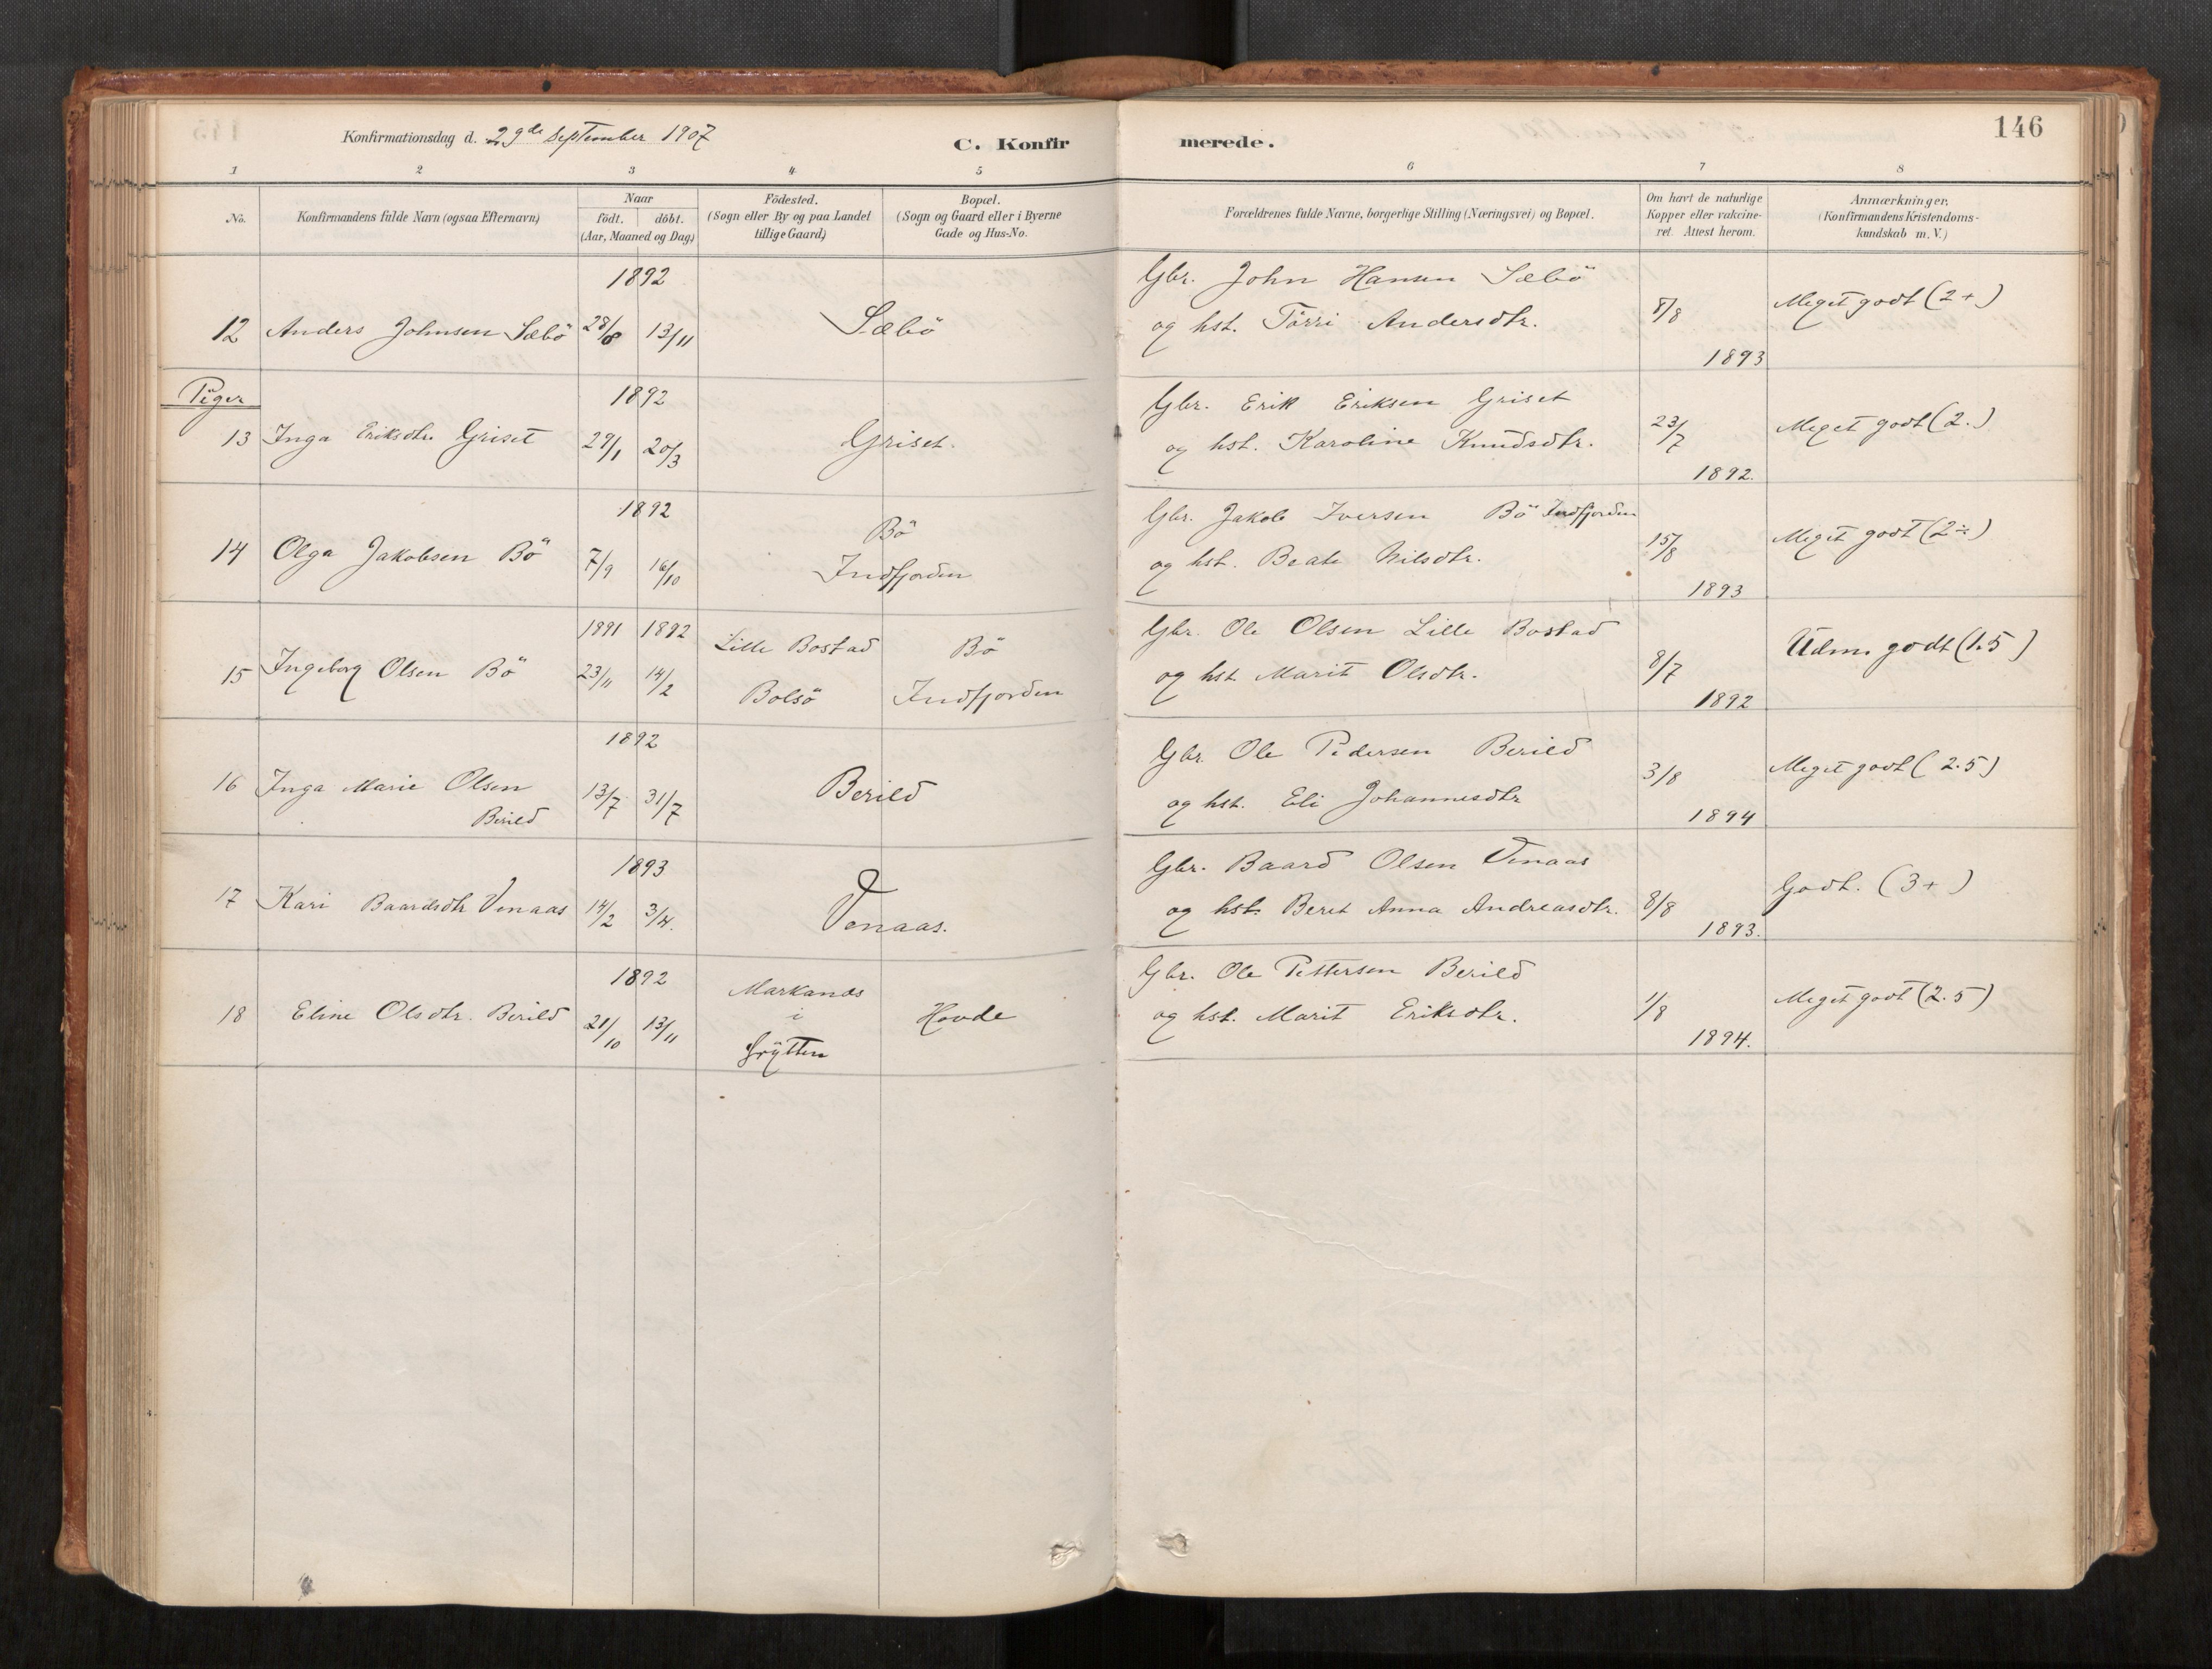 Konfirmationsdag d. 29de September 1907
C. Konfirmerede.
146
1 2 3 4 5 6 7 8
No.
Konfirmandens fulde Navn (ogsaa Efternavn)
Naar
födt. döbt.
(Aar, Maaned og Dag.)
Födested.
(Sogn eller By og paa Landet
tillige Gaard.)
Bopæl.
(Sogn og Gaard eller i Byerne
Gade og Hus-No.
Forældrenes fulde Navne, borgerlige Stilling (Næringsvei) og Bopæl.
Om havt de naturlige
Kopper eller vakcine-
ret. Attest herom.
Anmærkninger,
(Konfirmandens Kristendoms-
kundskab m. V.)
1892
12 Anders Johnsen Sæbö 28/8 13/11 Sæbö
Gbr. John Hansen Sæbö
og hst. Törri Andersdtr.
8/8
1893
Meget godt (2+)
Piger
1892
13 Inga Eriksdtr. Griset 29/1 20/3 Griset.
Gbr. Erik Eriksen Griset
og hst. Karoline Knudsdtr.
23/7
1892.
Meget godt (2.)
1892
14 Olga Jakobsen Bö 7/9 16/10
Bö
Indfjorden
Gbr. Jakob Iversen Bö Indfjorden
og hst. Beate Nilsdtr.
15/8
1893
Meget godt (2÷)
1891 1892
15 Ingeborg Olsen Bö 23/11 14/2
Lille Bostad
Bolsö
Bö
Indfjorden
Gbr. Ole Olsen Lille Bostad
og hst. Marit Olsdtr.
8/7
1892
Udm. godt (1.5)
1892
16 Inga Marie Olsen
Berild
13/7 31/7 Berild
Gbr. Ole Pedersen Berild
og hst. Eli Johannesdtr
3/8
1894
Meget godt (2.5)
1893
17 Kari Baardsdtr Venaas 14/2 3/4. Venaas.
Gbr. Baard Olsen Venaas
og hst. Beret Anna Andreasdtr.
8/8
1893.
Godt. (3+)
1892
18 Eline Olsdtr. Berild 21/10 13/11
Markands
i
Grytten
Hovde
Gbr. Ole Pettersen Berild
og hst. Marit Eriksdtr.
1/8
1894.
Meget godt (2.5)